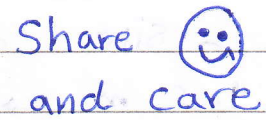 Share
and care